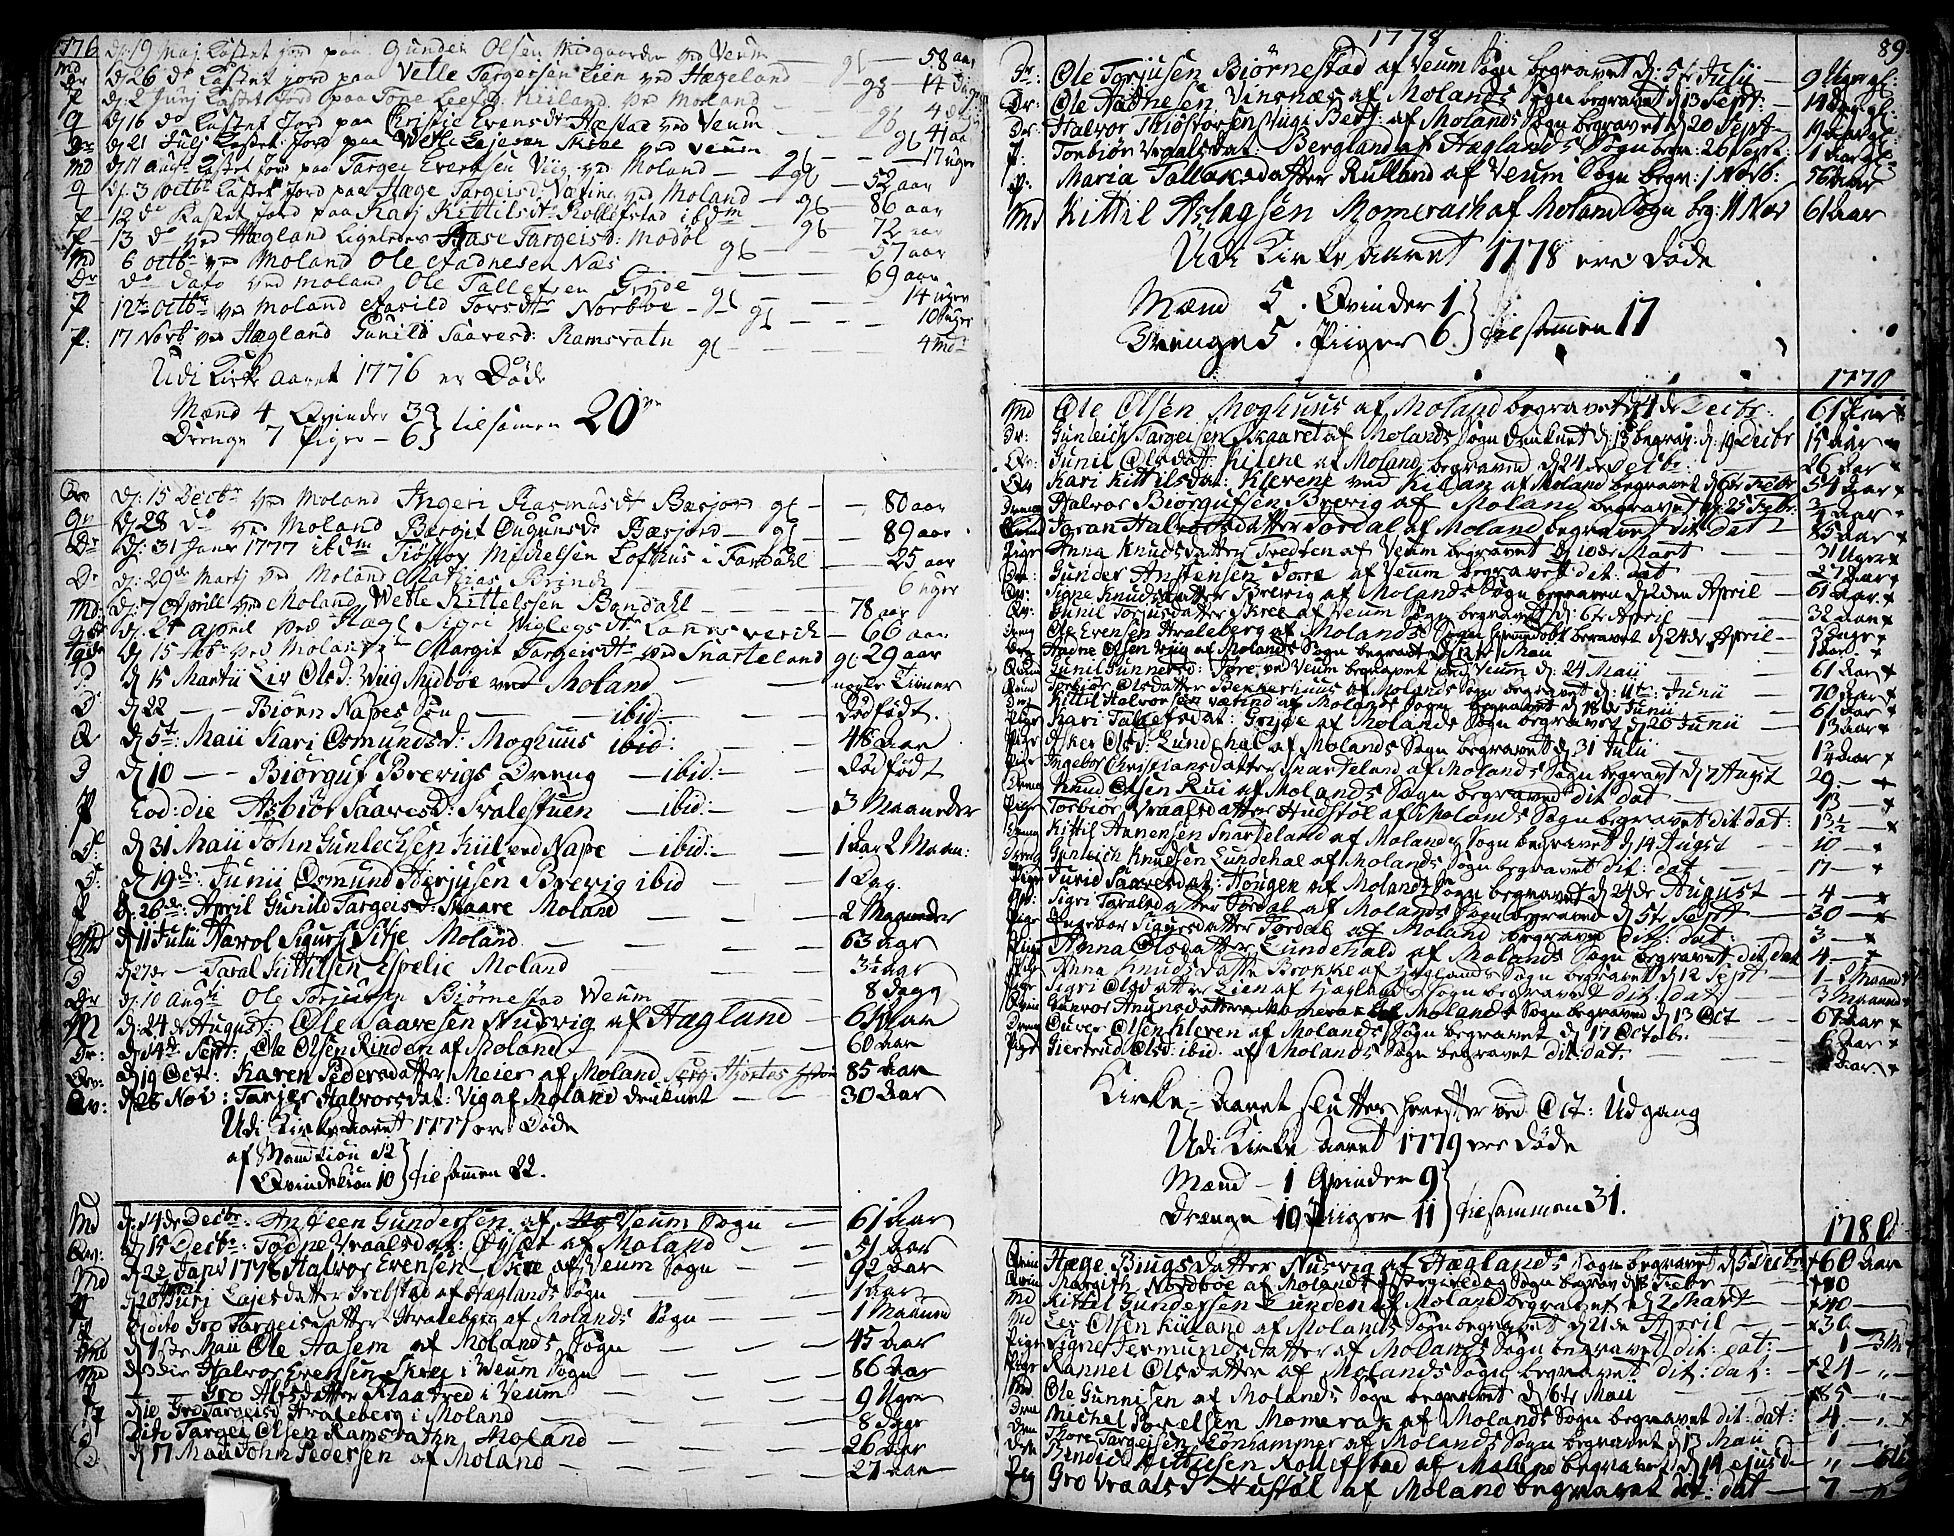 1776 dj: 19 Maj Kastet jord paa Gunder Olsen Midgaarden ved Veum — gl — 58 aar
Md dj 26 do Kastet jord paa Vetle Targersen Lien ved Hægeland — g8 — 14 Dage
dj: 2 Junj Kastet Jord paa Tore Leefsd: Kiiland ved Moland — 4 dage
q dj 16 do Kastet Jord paa Christie Evensdt Hæstad ved Veum — gl 41 aar
Dr dj 21 Julj Kastet Jord paa Wetle Lejesen Skree ved Veum — 17 uger
Md dj 11 aug: Kastet Jord paa Targer Evertsen Viig ved Moland — gl — 52 aar
q dj. 3 octbr Kastet Jord paa Hage Targeisd Næting ved Moland — gl — 86 aar
12 do Kastet jord paa Kari Kittilsdt Rollefstad ibdm — gl — 72 aar
13 do ved Hægland ligeledes Aase Targeisd: Modøl — 57 aar
Md 6 octbr ved Moland Ole Aadnesen Næs gl — 69 aar
Dr do dato ved Moland Ole Tallefsen Gryde — 14 uger
P 12te octbr ved Moland Aasild Torsdtr Norbøe — gl — 10 uger
P: 17 Norb ved Hægland Gunild Saavesd: Ramsvatn gl — 4 mdr
Udi Kirke aaret 1776 er Døde
Mænd 4 Qvinder 3
Drenge 7 Piger — 6 } tilsamen 20ve
Qv dj: 15 Decbr ved Moland Ingeri Rasmusdt Bæsjord gl — 80 aar
Qv dj 28 do ved Moland Bergit Gugunsdt Bæsjord — gl — 89 aar
Dr dj: 31 Janr 1777 ibdm Tiøstov Michelsen Lofthus i Fardahl — 25 aar
Dr dj: 29de Martj ved Moland Mathias Brinch — 6 uger
Md: dj: 7 Aprill ved Moland Wetle Kittelssen Bondahl — 78 aar
dj. 24 april ved Hægl Sigri Wiglegsdtr Landsverch — 66 aar
dj 15 ved Moland Margit Targeisdtr ved Snarteland gl. 29 aar
P dj 15 Martii Liv Olsd: Viig Midbøe ved Moland — nogle Timer
D dj 22 — Biørn Napes Søn — ibid: Dødfødt.
Q dj 5t: Maii Kari Osmundsd: Moghuus ibid: — 48 aar
D dj 10 — Biørguf Brevigs Dreng — ibid: — dødfødt
P Eod: die Asbiør Saavesd: Svalestuen — ibid: — 3 Maaneder
Dr dj 31 Maii John Gunlechsen Kiil ved Nape — ibid: — 1 aar 2 Maan:
Dr dj 19de: Junii Osmund Herjusen Brevig ibid — 1 Dag.
P. dj: 26de: April Gunild Targeisd: Skaare Moland — 2 Maaneder
Md dj 11 Julii Havol Sigurs: Sitje Moland — 63 aar
D dj 27de — Taral Kittilsen Espelie Moland — 3½ aar
Dr dj. 10 Augti Ole Torjussen Biørnestad Weum — 8 dage
M dj: 24de August: Ole Saavesen Nusvig af Hægland — 61 aar
Dr: dj 14de Sept: Ole Olsen Rinden af Moland — 60 aar
Qv: dj 19 Oct: Karen Pedersdatter Meier af Moland Serg: Hjortes 85 aar
Qv: dj 28 Nov: Targer Halvorsdat: Vig af Moland druknet — 30 aar
Udi Kirke aaret 1777 ere Døde
af Mandkiøn 12
Qvindekiøn 10 } tilsamen 22.
Md dj: 14de Decbr: Ansteen Gundersen af Veum Sogn — 61 aar
Qv: dj 15 Decbr: Tadne Vraalsdat: Øyset af Moland — 51 aar
Md dj 22 Janv 1778 Halvor Evensen Skree af Veum Sogn — 92 aar
P dj 20 Turi Lajesdatter Grelstad af Hæglands Sogn — 1 aar
P dj dito Gro Targeisdatter Araleberg af Molands Sogn — 1 Maaned
Md dj 1ste Maii Ole Aasem af Molands Sogn — 45 aar
Md dj 3die Halvor Evensen Skree i Veum Sogn — 86 aar
P — Gro Alfsdatter Flaatred i Veum — 9 Uger
P die Gro Targeisd Araleberg i Moland — 8 dage
D Dito Targei Olsen Ramsvathn Moland — 26 aar
D. dj 17 Maii John Pedersen af Moland — 21 aar
1778
89.
Dr: Ole Torjusen Biørnestad af Veum Sogn begravet dj: 5t Julii — 9 Uger gl:
Dr: Ole Aadnesen Vinsnæs af Molands Sogn begravet dj 13 Sept: — 14 dar gl:
Dr: Halvor Thiøstorsen Berg: af Molands Sogn begravet dj 20 Sept — 19 dar gl:
P: Torbiør Vraalsdat: Bergland af Hæglands Sogn begr: 26 Sept: — 1 dar gl:
P. Maria Tallaksdatter Rulland af Veum Sogn begr: 1 Novb: 56 aar
Md Kittil Aslagsen Momerach af Moland Sogn bg: 11 Nov 61 aar
Udi Kirke Aaret 1778 ere Døde
Mænd 5. Qvinder 1
Drenge 5. Piiger 6. } tilsamen 17
1779
Md Ole Olsen Moghuus af Moland begravet dj 4de Decbr: 61 aar
Dr: Gunleich Targeisen Skaaret af Molands Sogn druknet dj: 13 begrav: dj: 19 Decbr 15 aar
Qv: Gunil Olsdat: Kilene af Moland begraved dj 24de Decbr: 26 aar
Qv Kari Kittilsdat: Klevene ved Kilan af Moland begravet dj 6t Febr 54 aar
Dreng Halvor Biørgufsen Brevig af Moland begravet dj: 25 Febr: ¾ aar
Qvind Joran Halvorsdatter Tordal af Moland begravet dit: dat — 85 aar
Piger Anna Knudsdatter Tredten af Veum begravet dj 10de Mart — 31 Uger
Dr: Gunder Anstensen Tore af Veum begravet dit: dat — 27 aar
Qv: Signe Knudsdatter Brevig af Molands Sogn begraven dj 2den April — 61 aar
Qv: Gunil Torjusdatter Skree af Veum Sogn begravet dj: 6te April — 32 aar
Dreng Ole Evensen Araleberg af Molands Sogn begravet dj 24de April — 3 dage
Dreng Aadne Olsen Viig af Molands Sogn begravet dj 12te Maii — 1 aar
Qvind Gunil Gunnersd: Tore ved Veum begravet ved Veum dj: 24 Maii — 61 aar
Qvind Torbiør Olsdatter Benkerhuus af Molands Sogn begravet dj: 11te Junii — 70 aar
Dreng Kittil Halvorsen Væting af Molands Sogn begravet dj 18de Junii — 61 aar
Piger Kari Tallefsdat: Gryde af Molands Sogn begravet dj 20 Junii — 13 aar
Piger Asker Olsd: Lundehal af Molands Sogn begravet dj 31 Julii — 1¼ aar
Piger Ingebor Christiansdatter Snarteland af Molands Sogn begravet dj 7 Augst 29 —
Dreng Knud Olsen Rui af Molands Sogn begraved dit dat — 13 —
Piger Torbiør Vraalsdatter Hudstøl af Molands Sogn begravet dit dat: 13½ —
Dreng Kittil Annensen Snarteland af Molands Sogn begravet dj 14 August 10 —
Dreng Gunleich Knudsen Lundehal af Molands Sogn begravet dit: dat — 17 —
Piger Turid Saavesdat: Hougen af Molands Sogn begravet dj 24de August — 4 —
Qv: Sigri Taralsdatter Tordal af Molands Sogn begraved dj 5te Sept — 30 —
Piger Ingebor Sigursdatter Tordal af Moland begraved dit: dat: — 3 —
Piger Anna Olsdatter Lundehald af Molands Sogn begravet dit dat — 4 —
Piger Anna Knudsdatter Brokke af Hæglands Sogn begravet dj 12 Sept — 1 — 2 Maaneder
Piger Sigri Olsdatter Lien af Hæglands Sogn begravet dit: dat: — 3 Maaneder
Qvind Gunvor Anungsdatter Momerak af Molands Sogn begravet dj 13 Oct — 67 aar
Dreng Oliver Olsen Kleven af Molands Sogn begravet dj 17 Octobr. — 6 aar
Piger Giertrud Olsd: ibid. af Molands Sogn begravet dit: dat: — aar
Kirke-Aaret slutter herefter ved Oct: Udgang
Udi Kirke Aaret 1779 ere døde
Mænd — 1 Qvinder 9
Drenge 10 Piiger 11 } tilsammen 31.
1780
Qvin Hæge Biugsdatter Nusvig af Hæglands Sogn begravet dj 5 Decbr 60 Aar
Qvin Margith Nordbøe af Molands Sogn begrav: dj 8 Febr — 80
Md Kittil Gundersen Lunden af Moland begravet dj 2 Mart — 40 —
Md Lev Olsen Kiiland af Molands Sogn begravet dj 21de April — 30 —
Piger Signe Germundsdatter af Molands Sogn begravet dit: dat: — 1 — 3 Md
Piger Rannei Olsdatter af Molands Sogn begravet dit: dat: 24 —
Md Ole Gunnisen af Molands Sogn begravet dj 6te Maii — 85 —
Dren Michel Povelsen Momerak af Molands Sogn begravet dit: dat: 4 —
Dren Thore Targeisen Lønhammer af Molands Sogn begravet dj 13 Maii — 1 —
Dre Bendict Kittilsen Rollefstad af Moland begravet dj 14 ejusd —
Pig Gro Vraalsd Hustøl af Moland begravet dit: dat — 7 —